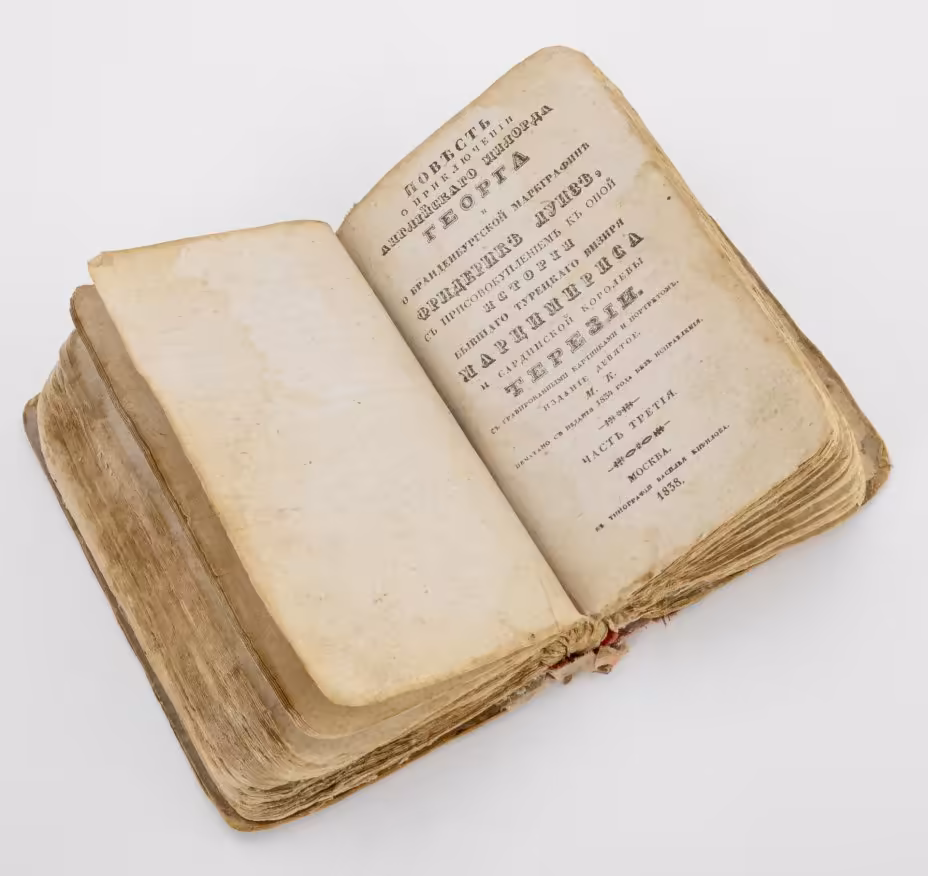 ПОВѢСТЬ
О ПРИКЛЮЧЕНІИ
АНГЛІЙСКАГО МИЛОРДА
ГЕОРГА
и
О БРАНДЕНБУРГСКОЙ МАРКГРАФИНѢ
ФРИДЕРИКѢ ЛУИЗѢ,
СЪ ПРИСОВОКУПЛЕНІЕМЪ КЪ ОНОЙ
ИСТОРІИ
БЫВШАГО ТУРЕЦКАГО ВИЗИРЯ
МАРЦИМИРИСА
И САРДИНСКОЙ КОРОЛЕВЫ
ТЕРЕЗІИ.
СЪ ГРАВИРОВАННЫМИ КАРТИНКАМИ И ПОРТРЕТОМЪ.
ИЗДАНІЕ ДЕВЯТОЕ.
М. К.
ПЕЧАТАНО СЪ ИЗДАНІЯ ГОДА БЕЗЪ ИСПРАВЛЕНІЯ.
ЧАСТЬ ТРЕТІЯ.
МОСКВА.
ВЪ ТИПОГРАФІИ ВАСИЛЬЯ КИРИЛОВА.
1838.